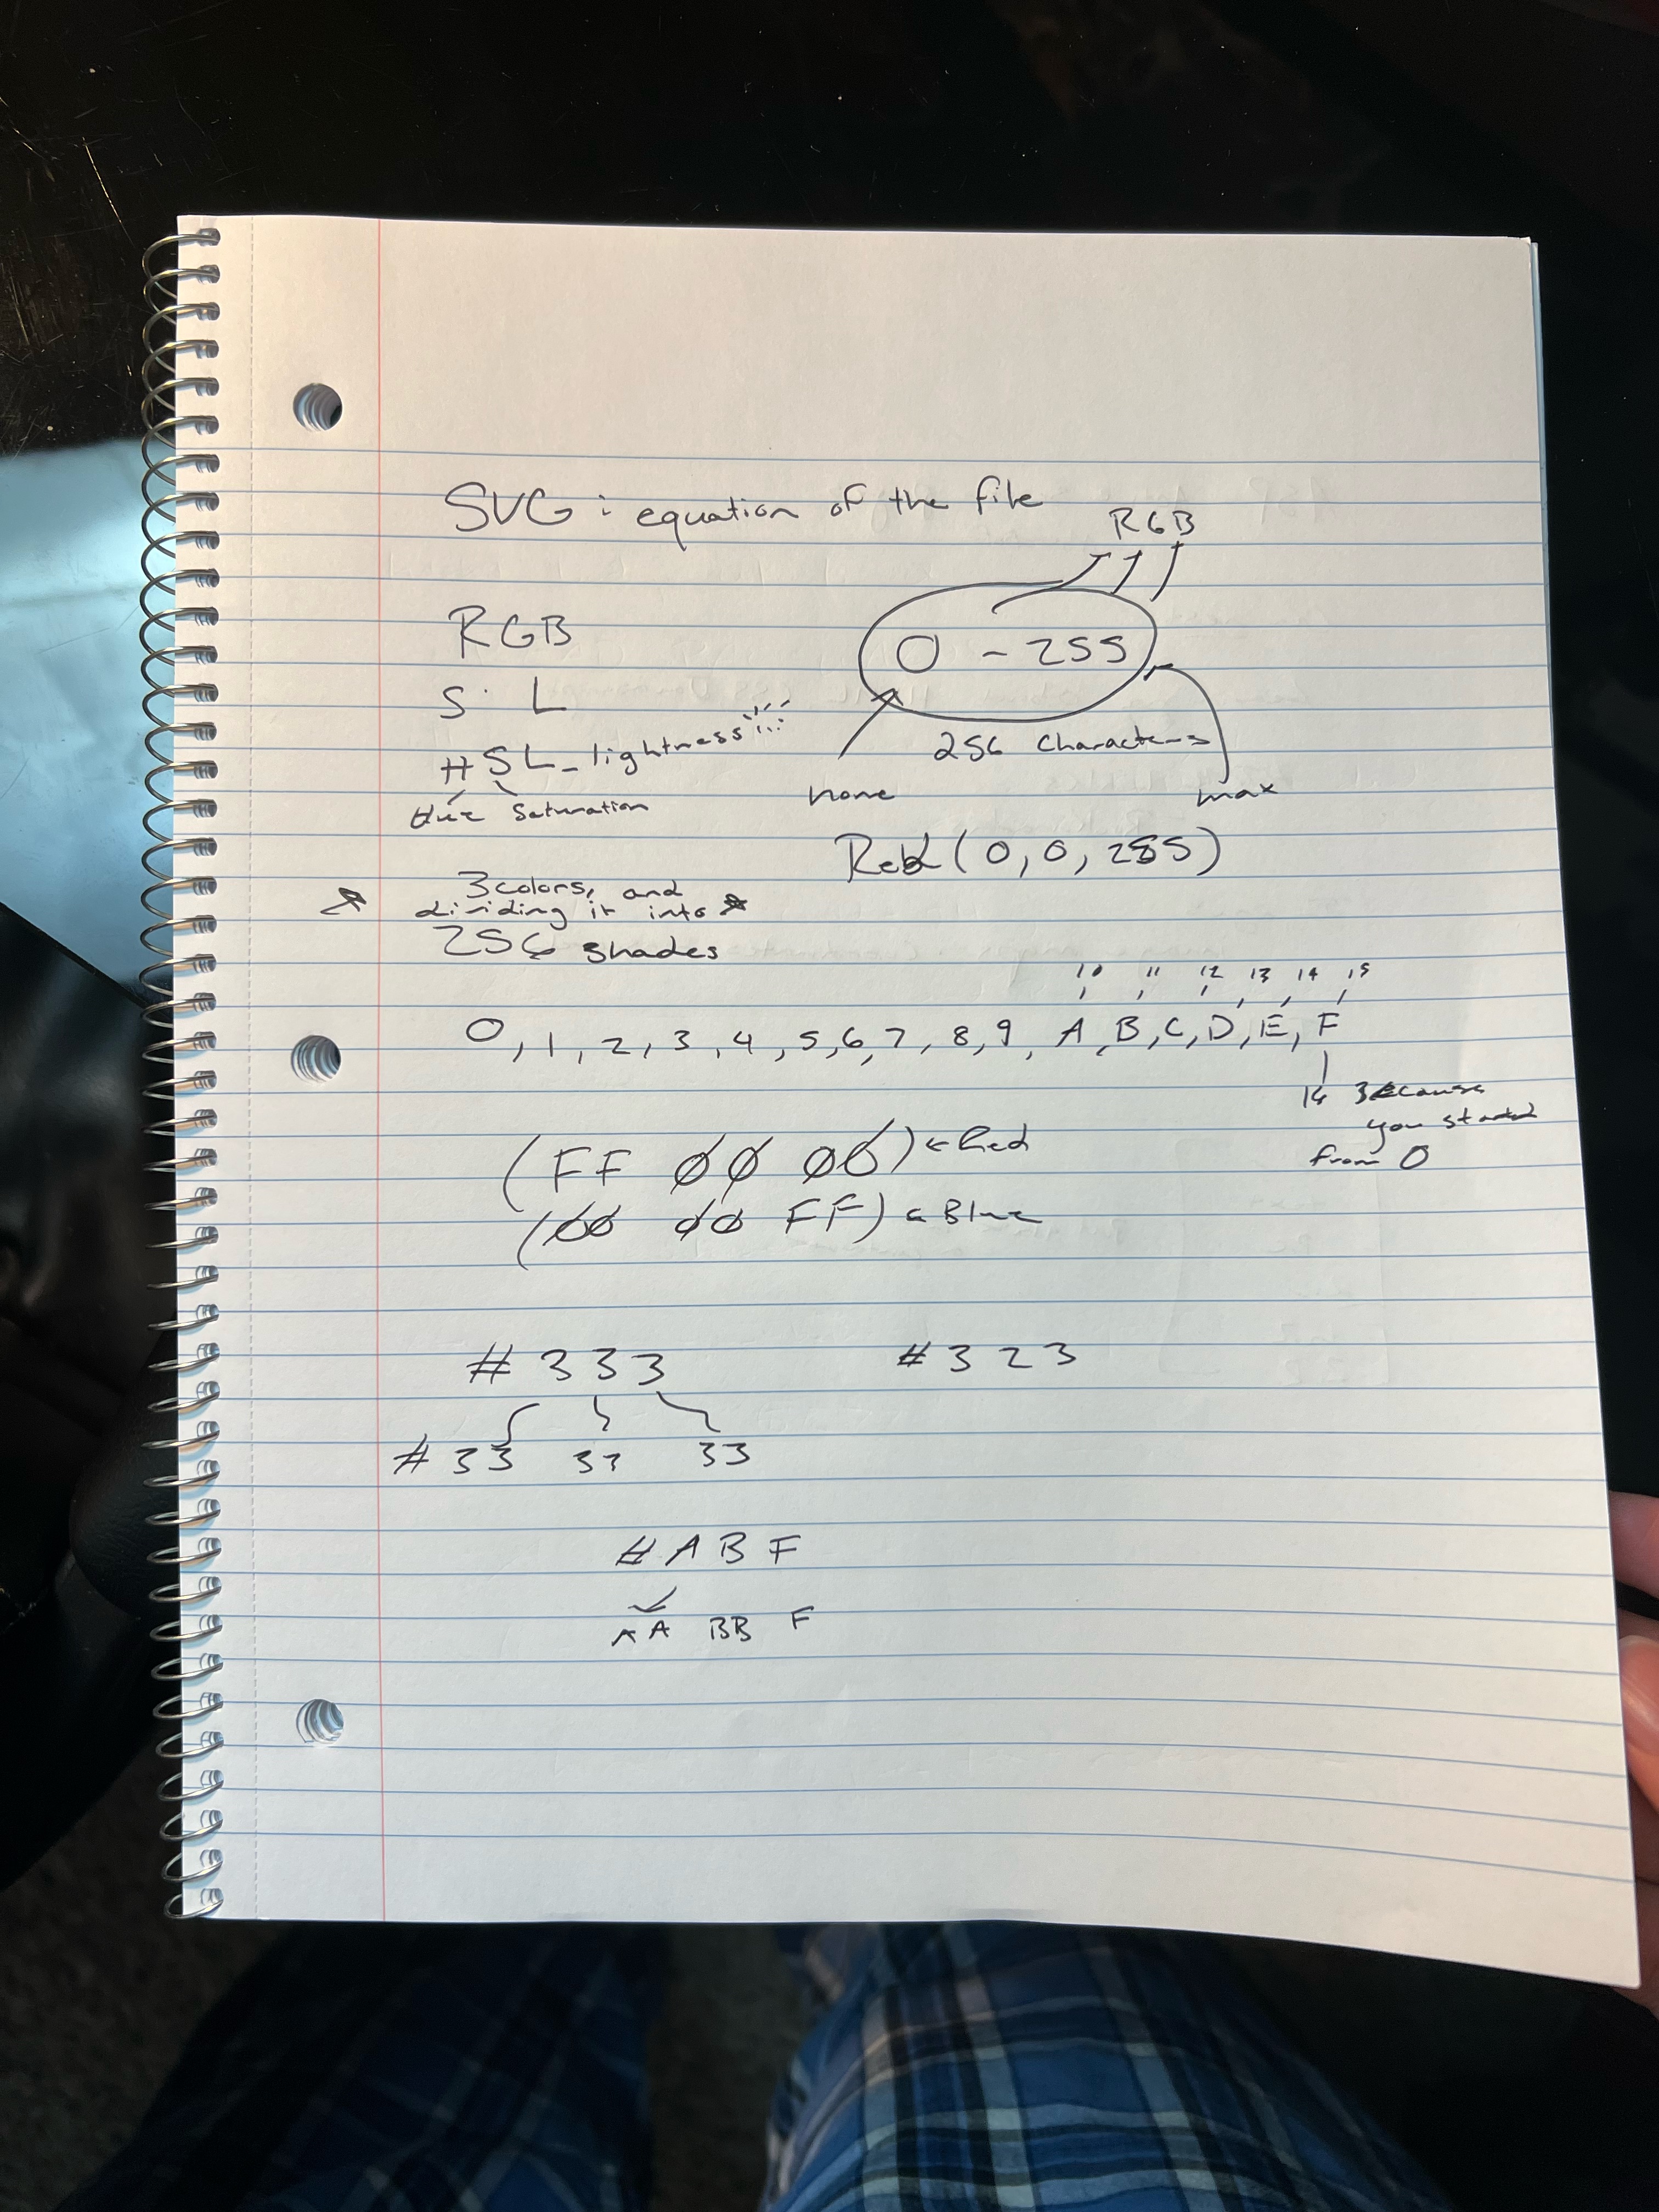 SVG : equation of the file
RGB
RGB
0 - 255
S L
HSL - lightness
256 Characters
Hue Saturation
none
max
(0, 0, 255)
3 colors, and
dividing it into
256 shades
10 11 12 13 14 15
0, 1, 2, 3, 4, 5, 6, 7, 8, 9, A, B, C, D, E, F
16 Because
you started
from 0
(FF 00 00) ← Red
(00 00 FF) ← Blue
# 333
# 323
# 33 33 33
# A B F
AA BB F